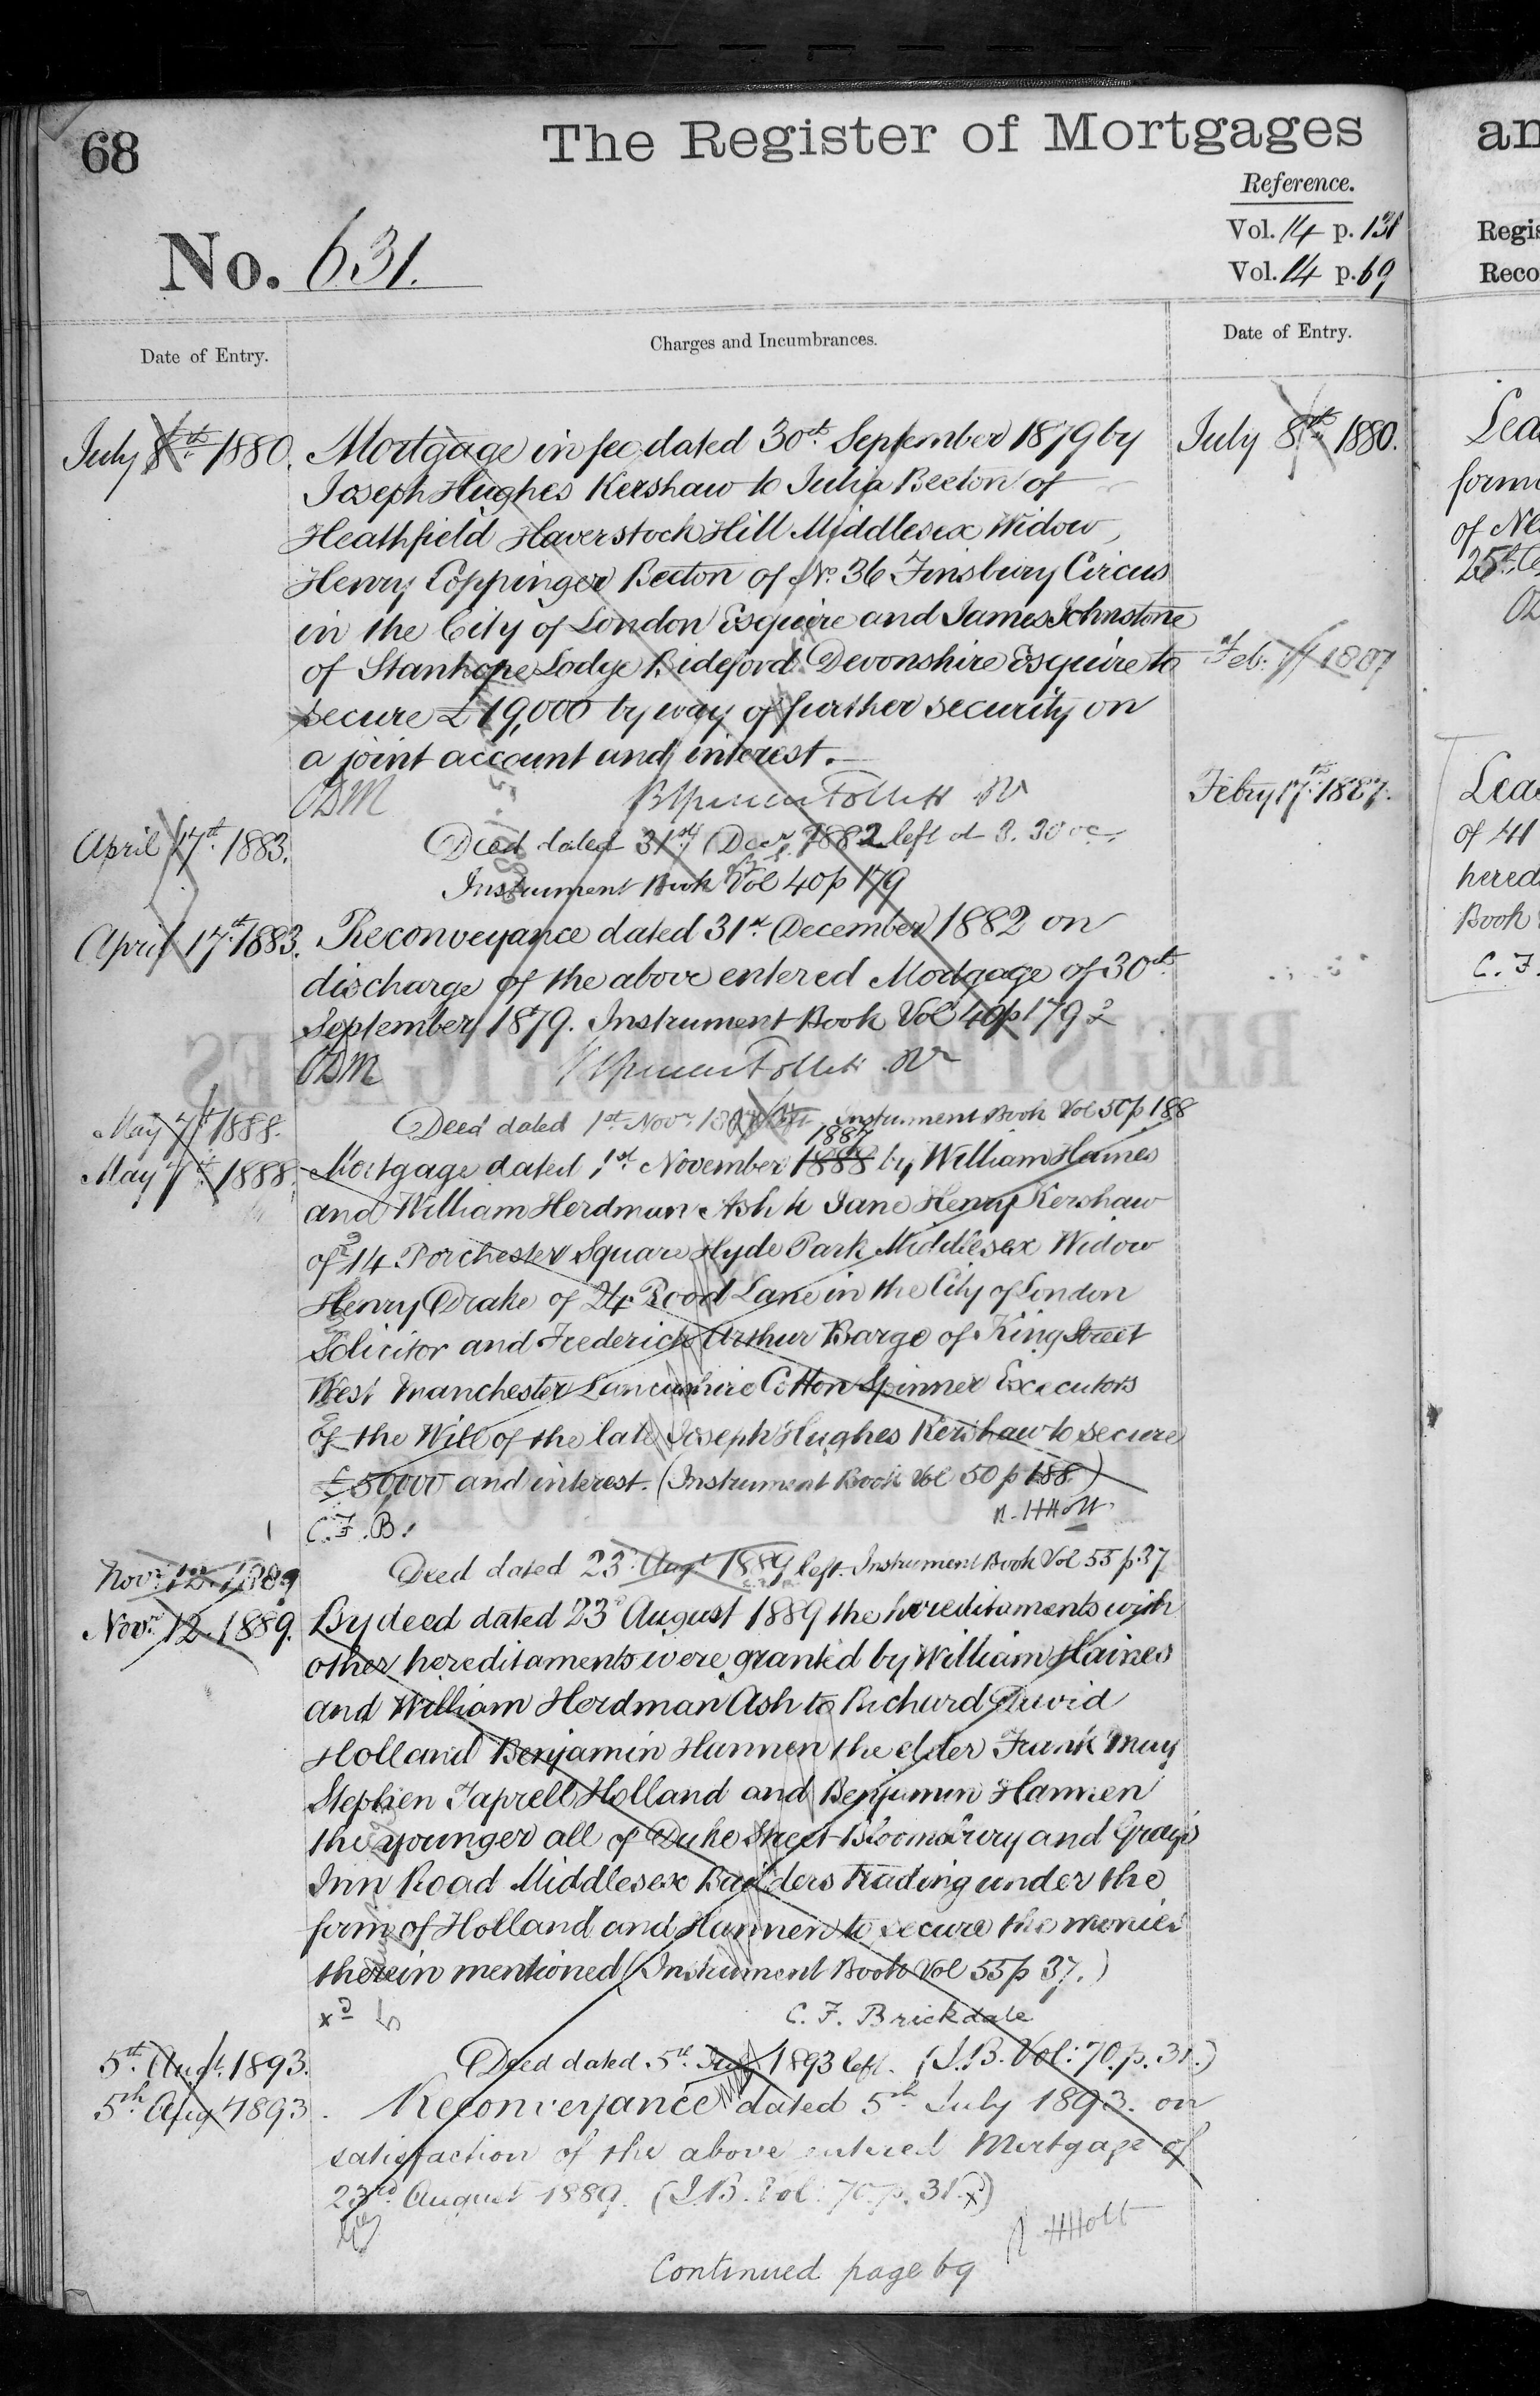 68
The Register of Mortgages
Reference.
Vol. 14 p. 131
Vol. 14 p. 69
No. 631.
Date of Entry.
Charges and Incumbrances.
Date of Entry.
July 8th 1880.
Mortgage in fee dated 30th September 1879 by
Joseph Hughes Kershaw to Julia Beeton of
Heathfield Haverstock Hill Middlesex Widow
Henry Coppinger Beeton of No. 36 Finsbury Circus
in the City of London Esquire and James Johnstone
of Stanhope Lodge Bideford Devonshire Esquire to
secure £19,000 by way of further security on
a joint account and interest.
July 8th 1880.
Feb. 1887
Febry 17th 1887.
April 17th 1883.
Deed dated 31st Decr 1882 left at 3.30 oc.
Instrument Book Vol 40 p 179
April 17th 1883.
Reconveyance dated 31st December 1882 on
discharge of the above entered Mortgage of 30th
September 1879. Instrument Book Vol 40 p 179
May 7th 1888.
Deed dated 1st Novr left. Instrument Book Vol 50 p 188
May 7th 1888.
1887
Mortgage dated 1st November 1888 by William Haines
and William Herdman Ash to Jane Henry Kershaw
of 14 Porchester Square Hyde Park Middlesex Widow
Henry Drake of 24 Rood Lane in the City of London
Solicitor and Frederick Arthur Barge of King Street
West Manchester Lancashire Cotton Spinner Executors
of the Will of the late Joseph Hughes Kershaw to secure
£50000 and interest. (Instrument Book Vol 50 p 188)
C.F.B.
R. H Holt
Novr 12. 1889
Deed dated 23d Augt 1889 left. Instrument Book Vol 55 p. 37
Novr 12. 1889.
By deed dated 23d August 1889 the hereditaments with
other hereditaments were granted by William Haines
and William Herdman Ash to Richard David
Holland Benjamin Hannen the elder Frank May
Stephen Taprell Holland and Benjamin Hannen
the younger all of Duke Street Bloomsbury and Gray's
Inn Road Middlesex Builders trading under the
firm of Holland and Hannen to secure the monies
therein mentioned (Instrument Book Vol 55 p 37.)
C. F. Brickdale
5th Augt. 1893.
Deed dated 5th July 1893 left. (I.B. Vol: 70. p. 31.)
5th Aug 1893.
Reconveyance dated 5th July 1893. on
satisfaction of the above entered Mortgage of
23rd August 1889. (I.B. Vol: 70. p. 31.)
R HHolt
Continued page 69
an
Regis
Reco
Lea
of 41
hered
Book
C. F.